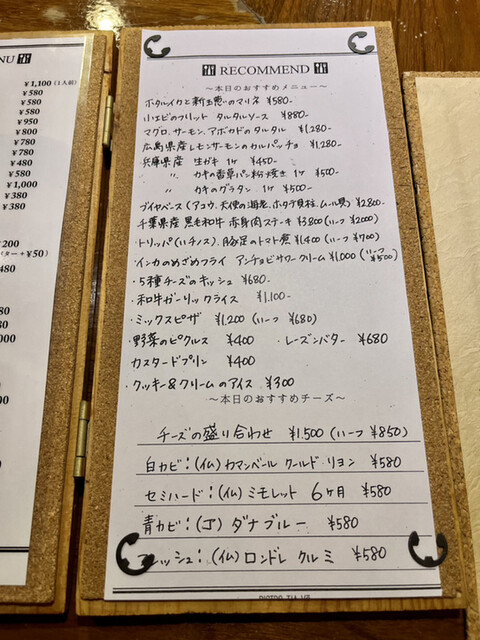 NU
¥1,100 (1人前)
¥580
¥580
¥950
¥800
¥780
¥780
¥480
¥580
¥1,000
¥380
¥380
¥200
バター+¥50)
480
RECOMMEND
〜本日のおすすめメニュー〜
ホタルイカと新玉葱のマリネ ¥580-
小エビのフリット タルタルソース ¥880-
マグロ、サーモン、アボカドのタルタル ¥1,280-
広島県産レモンサーモンのカルパッチョ ¥1,280-
兵庫県産 生ガキ 1ヶ ¥450-
〃 カキの香草パン粉焼き 1ヶ ¥500-
〃 カキのグラタン 1ヶ ¥500-
ブイヤベース(アコウ、天使の海老、ホタテ貝柱、ムール貝) ¥2,800-
千葉県産 黒毛和牛 赤身肉ステーキ ¥3,800 (ハーフ ¥2000)
・トリッパ(ハチノス)、豚足のトマト煮 ¥1,400 (ハーフ ¥700)
・インカのめざめフライ アンチョビサワークリーム ¥1,000 (ハーフ ¥500)
・5種チーズのキッシュ ¥680-
・和牛ガーリックライス ¥1,100-
・ミックスピザ ¥1,200 (ハーフ ¥680)
・野菜のピクルス ¥400 ・レーズンバター ¥680
カスタードプリン ¥400
・クッキー&クリームのアイス ¥300
〜本日のおすすめチーズ〜
チーズの盛り合わせ ¥1,500 (ハーフ ¥850)
白カビ:(仏) カマンベール クールド・リヨン ¥580
セミハード:(仏) ミモレット 6ヶ月 ¥580
青カビ:(丁) ダナブルー ¥580
レッシュ:(仏) ロンドレ クルミ ¥580